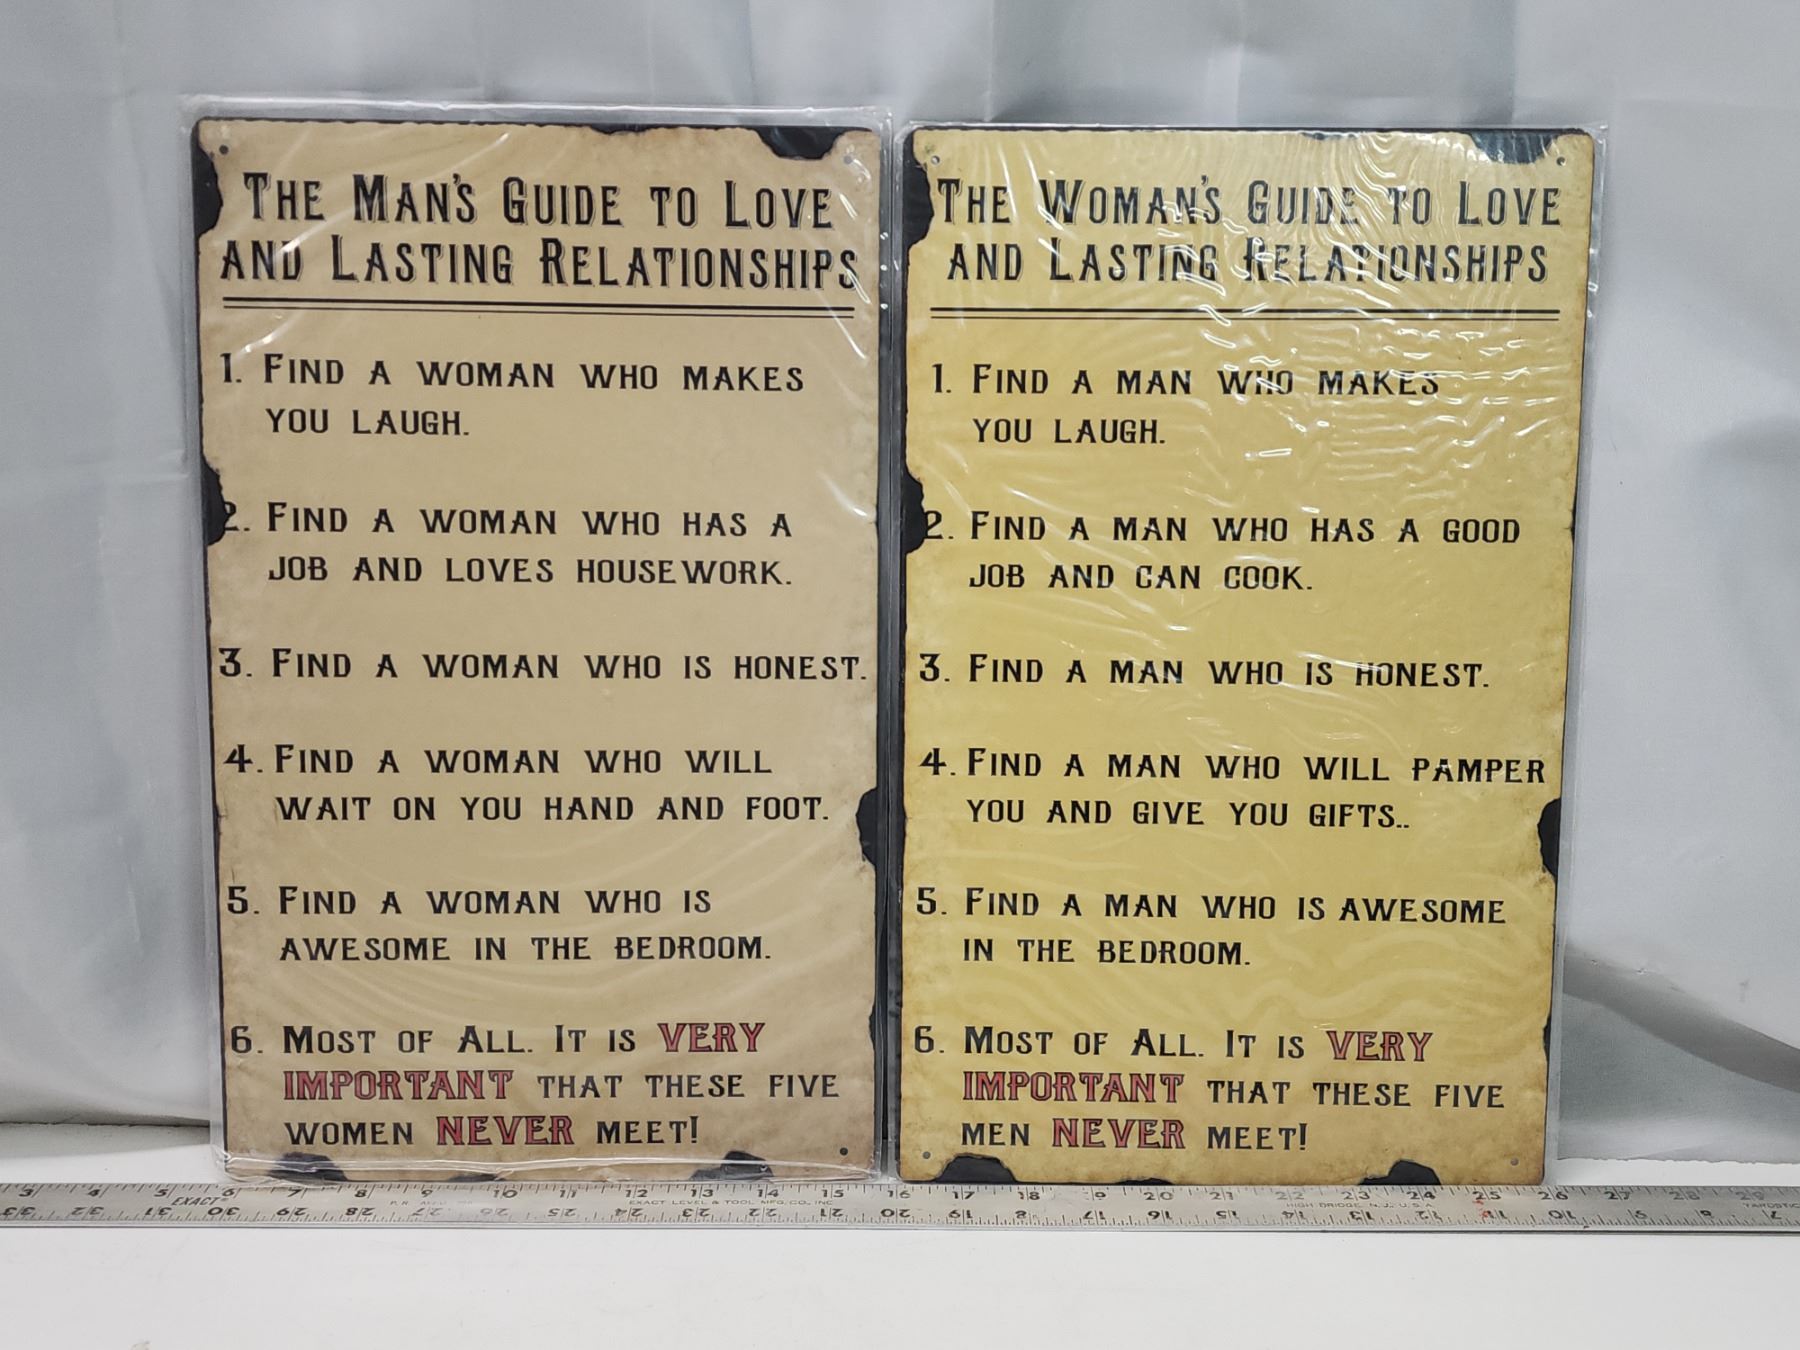 The Man's Guide to Love
and Lasting Relationships
1. Find a woman who makes
you laugh.
2. Find a woman who has a
job and loves housework.
3. Find a woman who is honest.
4. Find a woman who will
wait on you hand and foot.
5. Find a woman who is
awesome in the bedroom.
6. Most of All. It is VERY
IMPORTANT that these five
women NEVER meet!
The Woman's Guide to Love
and Lasting Relationships
1. Find a man who makes
you laugh.
2. Find a man who has a good
job and can cook.
3. Find a man who is honest.
4. Find a man who will pamper
you and give you gifts..
5. Find a man who is awesome
in the bedroom.
6. Most of All. It is VERY
IMPORTANT that these five
men NEVER meet!
3 4 5 6 7 8 9 10 11 12 13 14 15 16 17 18 19 20 21 22 23 24 25 26 27 28 29
EXACT
EXACT LEVEL & TOOL MFG. CO., INC.
HIGH BRIDGE, N.J., U.S.A.